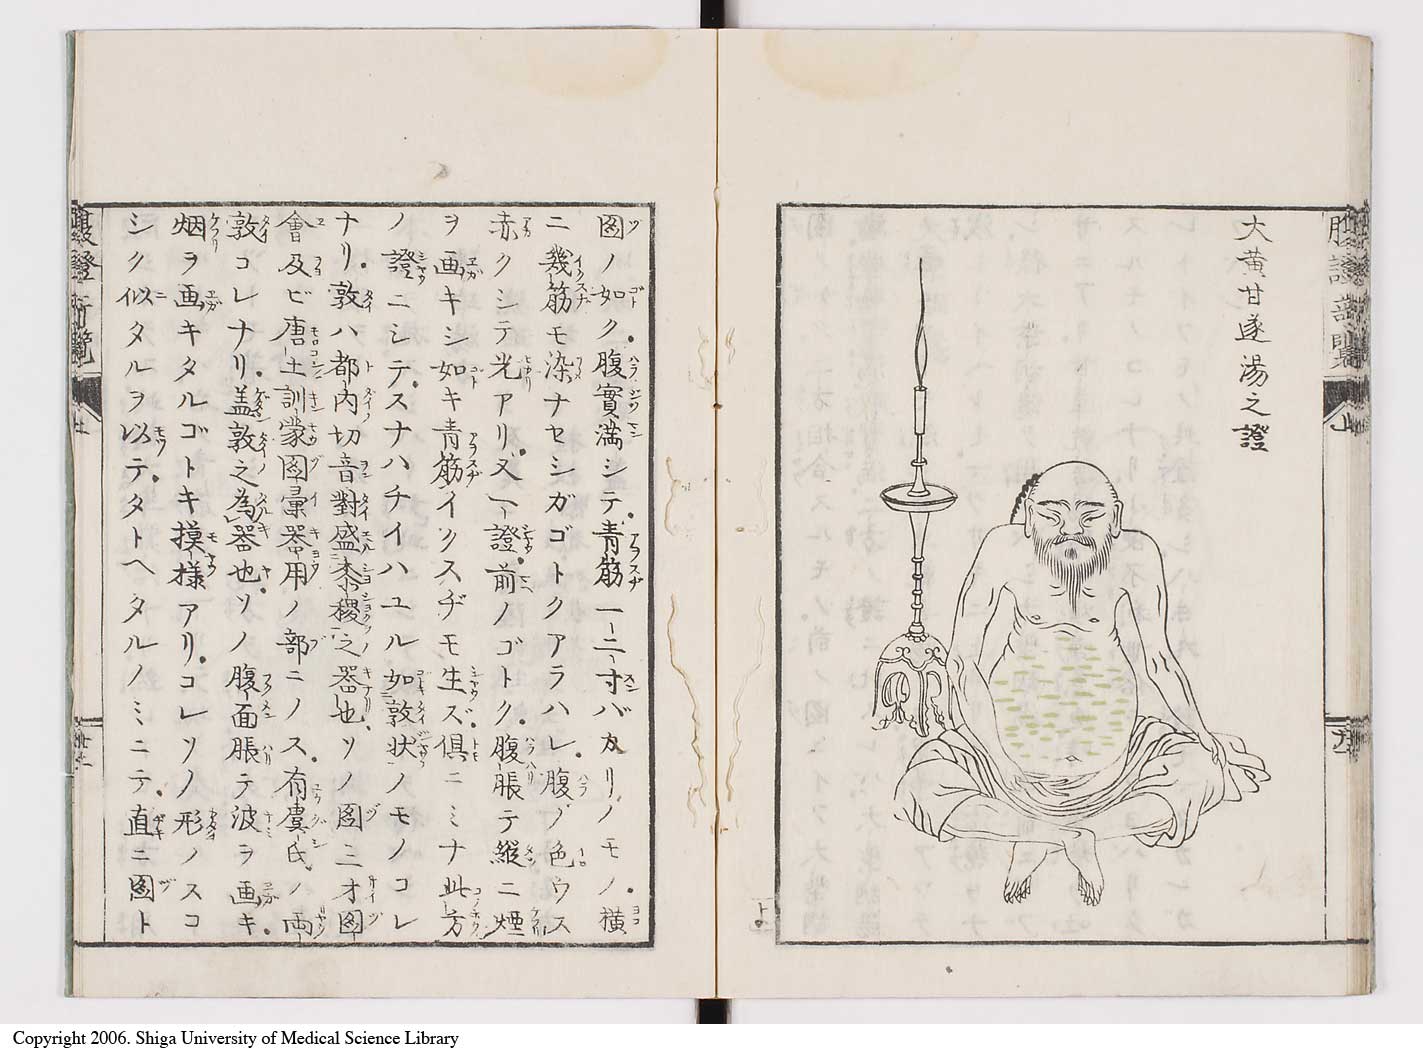 大黄甘遂湯之證
図ノ如ク腹實満シテ青筋一二寸バカリノモノ横
ニ幾筋モ染ナセシガゴトクアラハレ腹ノ色ウス
赤クシテ光アリ又一證前ノゴトク腹脹テ縦ニ煙
ヲ画キシ如キ青筋イクスヂモ生ズ俱ニミナ此方
ノ證ニシテスナハチイハユル如敦状ノモノコレ
ナリ敦ハ都内切音對盛黍稷之器也ソノ図三才図
會及ビ唐土訓蒙図彙器用ノ部ニノス有虞氏ノ両
敦コレナリ蓋敦之為器也ソノ腹面脹テ波ヲ画キ
烟ヲ画キタルゴトキ摸様アリコレソノ形ノスコ
シク似タルヲ以テタトヘタルノミニテ直ニ図ト
Copyright 2006. Shiga University of Medical Science Library